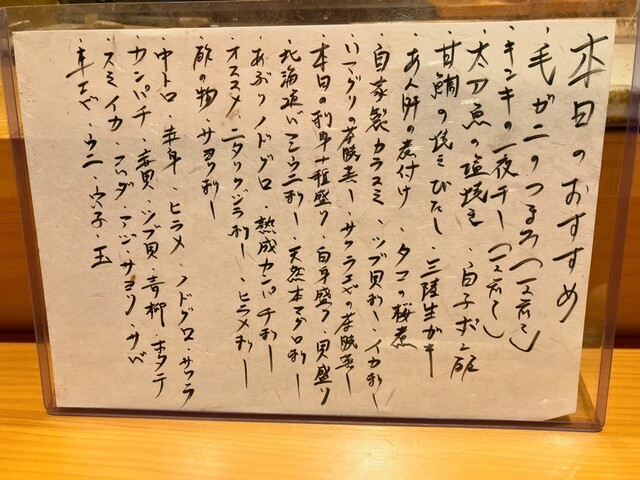 本日のおすすめ
・毛ガニのつまみ
・キンキの一夜干一
・太刀魚の塩焼き ・白子ポン酢
・甘鯛の焼きびたし ・三陸生ガキ
・あん肝の煮付け ・タコの桜煮
・自家製カラスミ ・ツブ貝刺し ・イカ刺し
・ハマグリの茶碗蒸し ・サクラエビの茶碗蒸し
・本日の刺身十種盛り ・白身盛り ・貝盛り
・北海道バフンウニ刺し ・天然本マグロ刺し
・あぶりノドグロ ・熟成カンパチ刺し
・オススメ ニタリクジラ刺し ・ヒラメ刺し
・酢の物 ・サヨリ刺し
・中トロ ・赤身 ・ヒラメ ・ノドグロ ・サワラ
・カンパチ ・赤貝 ・ツブ貝 ・青柳 ・ホタテ
・スミイカ ・コハダ ・アジ ・サヨリ ・サバ
・車エビ ・ウニ ・穴子 ・玉